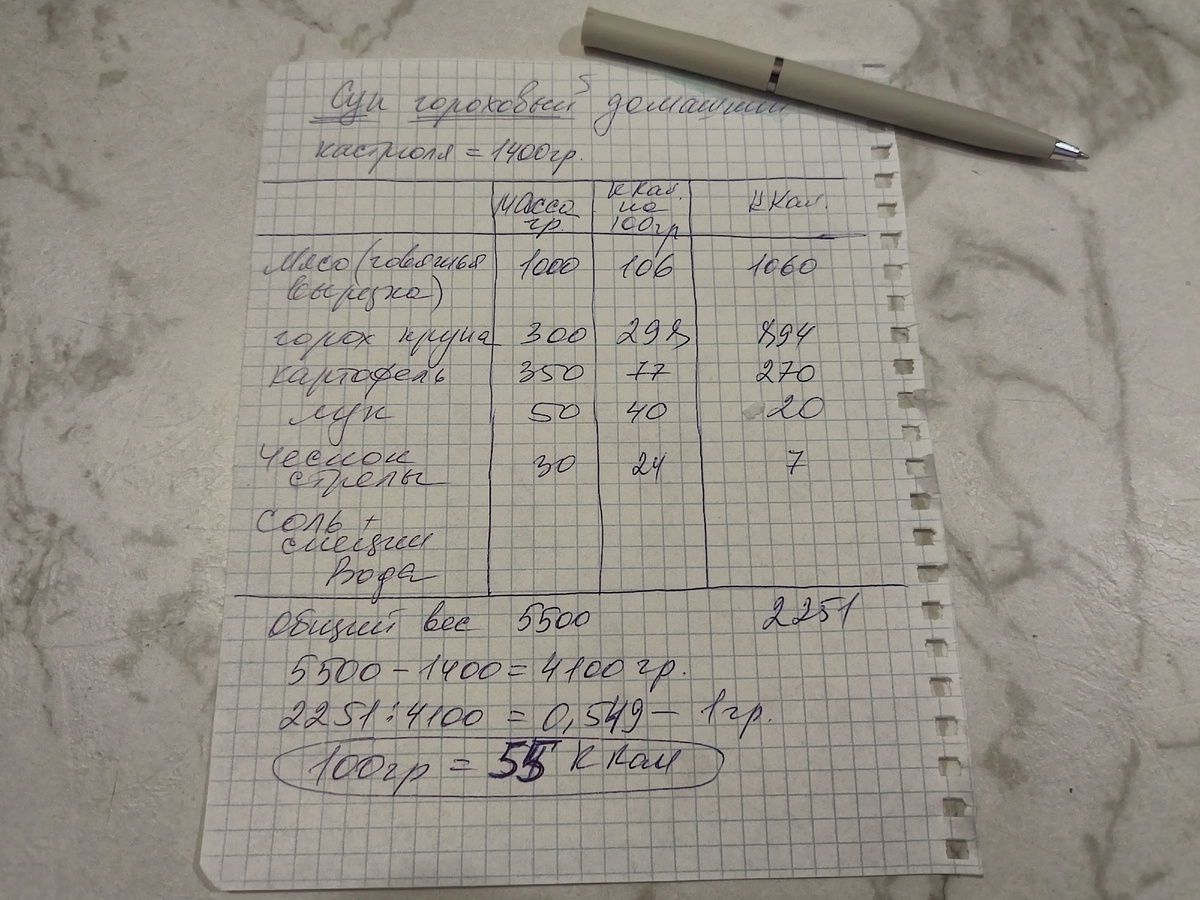 Суп гороховый домашний
кастрюля = 1400гр.
Масса гр. ККал. на 100гр ККал.
Мясо (говяжья 1000 106 1060
вырезка)
горох крупа 300 298 894
картофель 350 77 270
лук 50 40 20
Чеснок 30 24 7
стрелы
Соль +
специи
Вода
Общий вес 5500 2251
5500 - 1400 = 4100 гр.
2251 : 4100 = 0,549 - 1гр.
100гр = 55 ККал